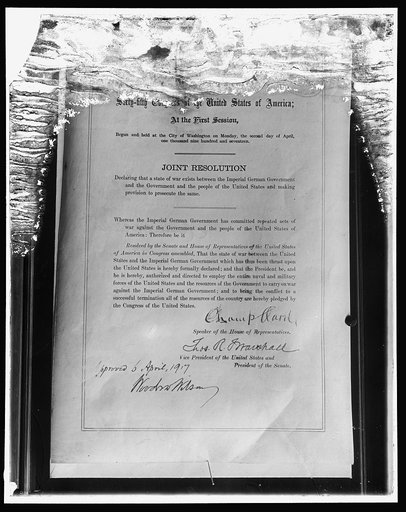 Sixty-fifth Congress of the United States of America;
At the First Session,
Begun and held at the City of Washington on Monday, the second day of April,
one thousand nine hundred and seventeen.
JOINT RESOLUTION
Declaring that a state of war exists between the Imperial German Government
and the Government and the people of the United States and making
provision to prosecute the same.
Whereas the Imperial German Government has committed repeated acts of
war against the Government and the people of the United States of
America: Therefore be it
Resolved by the Senate and House of Representatives of the United States
of America in Congress assembled, That the state of war between the United
States and the Imperial German Government which has thus been thrust upon
the United States is hereby formally declared; and that the President be, and
he is hereby, authorized and directed to employ the entire naval and military
forces of the United States and the resources of the Government to carry on war
against the Imperial German Government; and to bring the conflict to a
successful termination all of the resources of the country are hereby pledged by
the Congress of the United States.
Champ Clark
Speaker of the House of Representatives.
Thos. R. Marshall
Vice President of the United States and
President of the Senate.
Approved 6 April, 1917
Woodrow Wilson